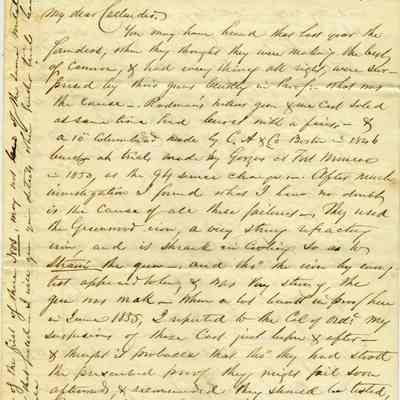 My dear Callender,
You may have heard that last year the
founders, when they thought they were making the best
of Cannon, & had every thing all right, were sur-
prised by their guns bursting in Proof. What was
the cause - Rodman's hollow gun & one Cast Solid
at same time had burst with a fires, - &
a 10 in Columbiad made by C. A. & Co Boston in 1846
burst at trials made by at Fort Monroe
in 1850, at the fire since change in. After much
investigation I found what I have no doubt
is the cause of all these failures - They used
the Greenwood iron, a very strong refractory
iron, and it shrank in Cooling So as to
Strain the gun - and tho' the iron by every
test appeared to be, & was Very strong, the
gun was weak - When a lot burst in proof here
in June 1855, I reported to the Col of Ordc my
suspicions of those Cast just before & after -
& thought it probable that tho' they had stood
the prescribed proof they might fail soon
afterward, & recommended they should be tested,
of the first of these 1000, may not of the same metal
this year - I will give you details when further trials have